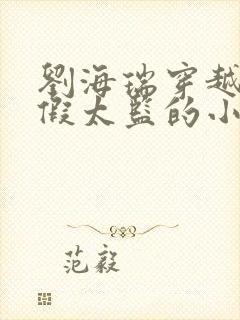 劉海瑞穿越
假太監的小
范毅